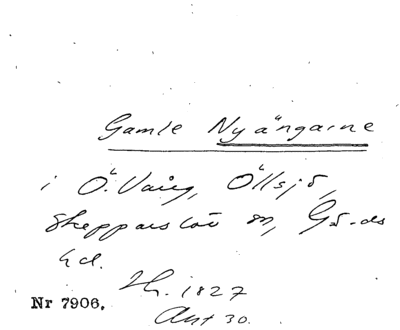 Gamle Nyängarne
i Ö. Vång, Öllsjö,
Skepparslöv sn, Gä-ds
hd.
Ht. 1827
Akt 30.
Nr 7906.